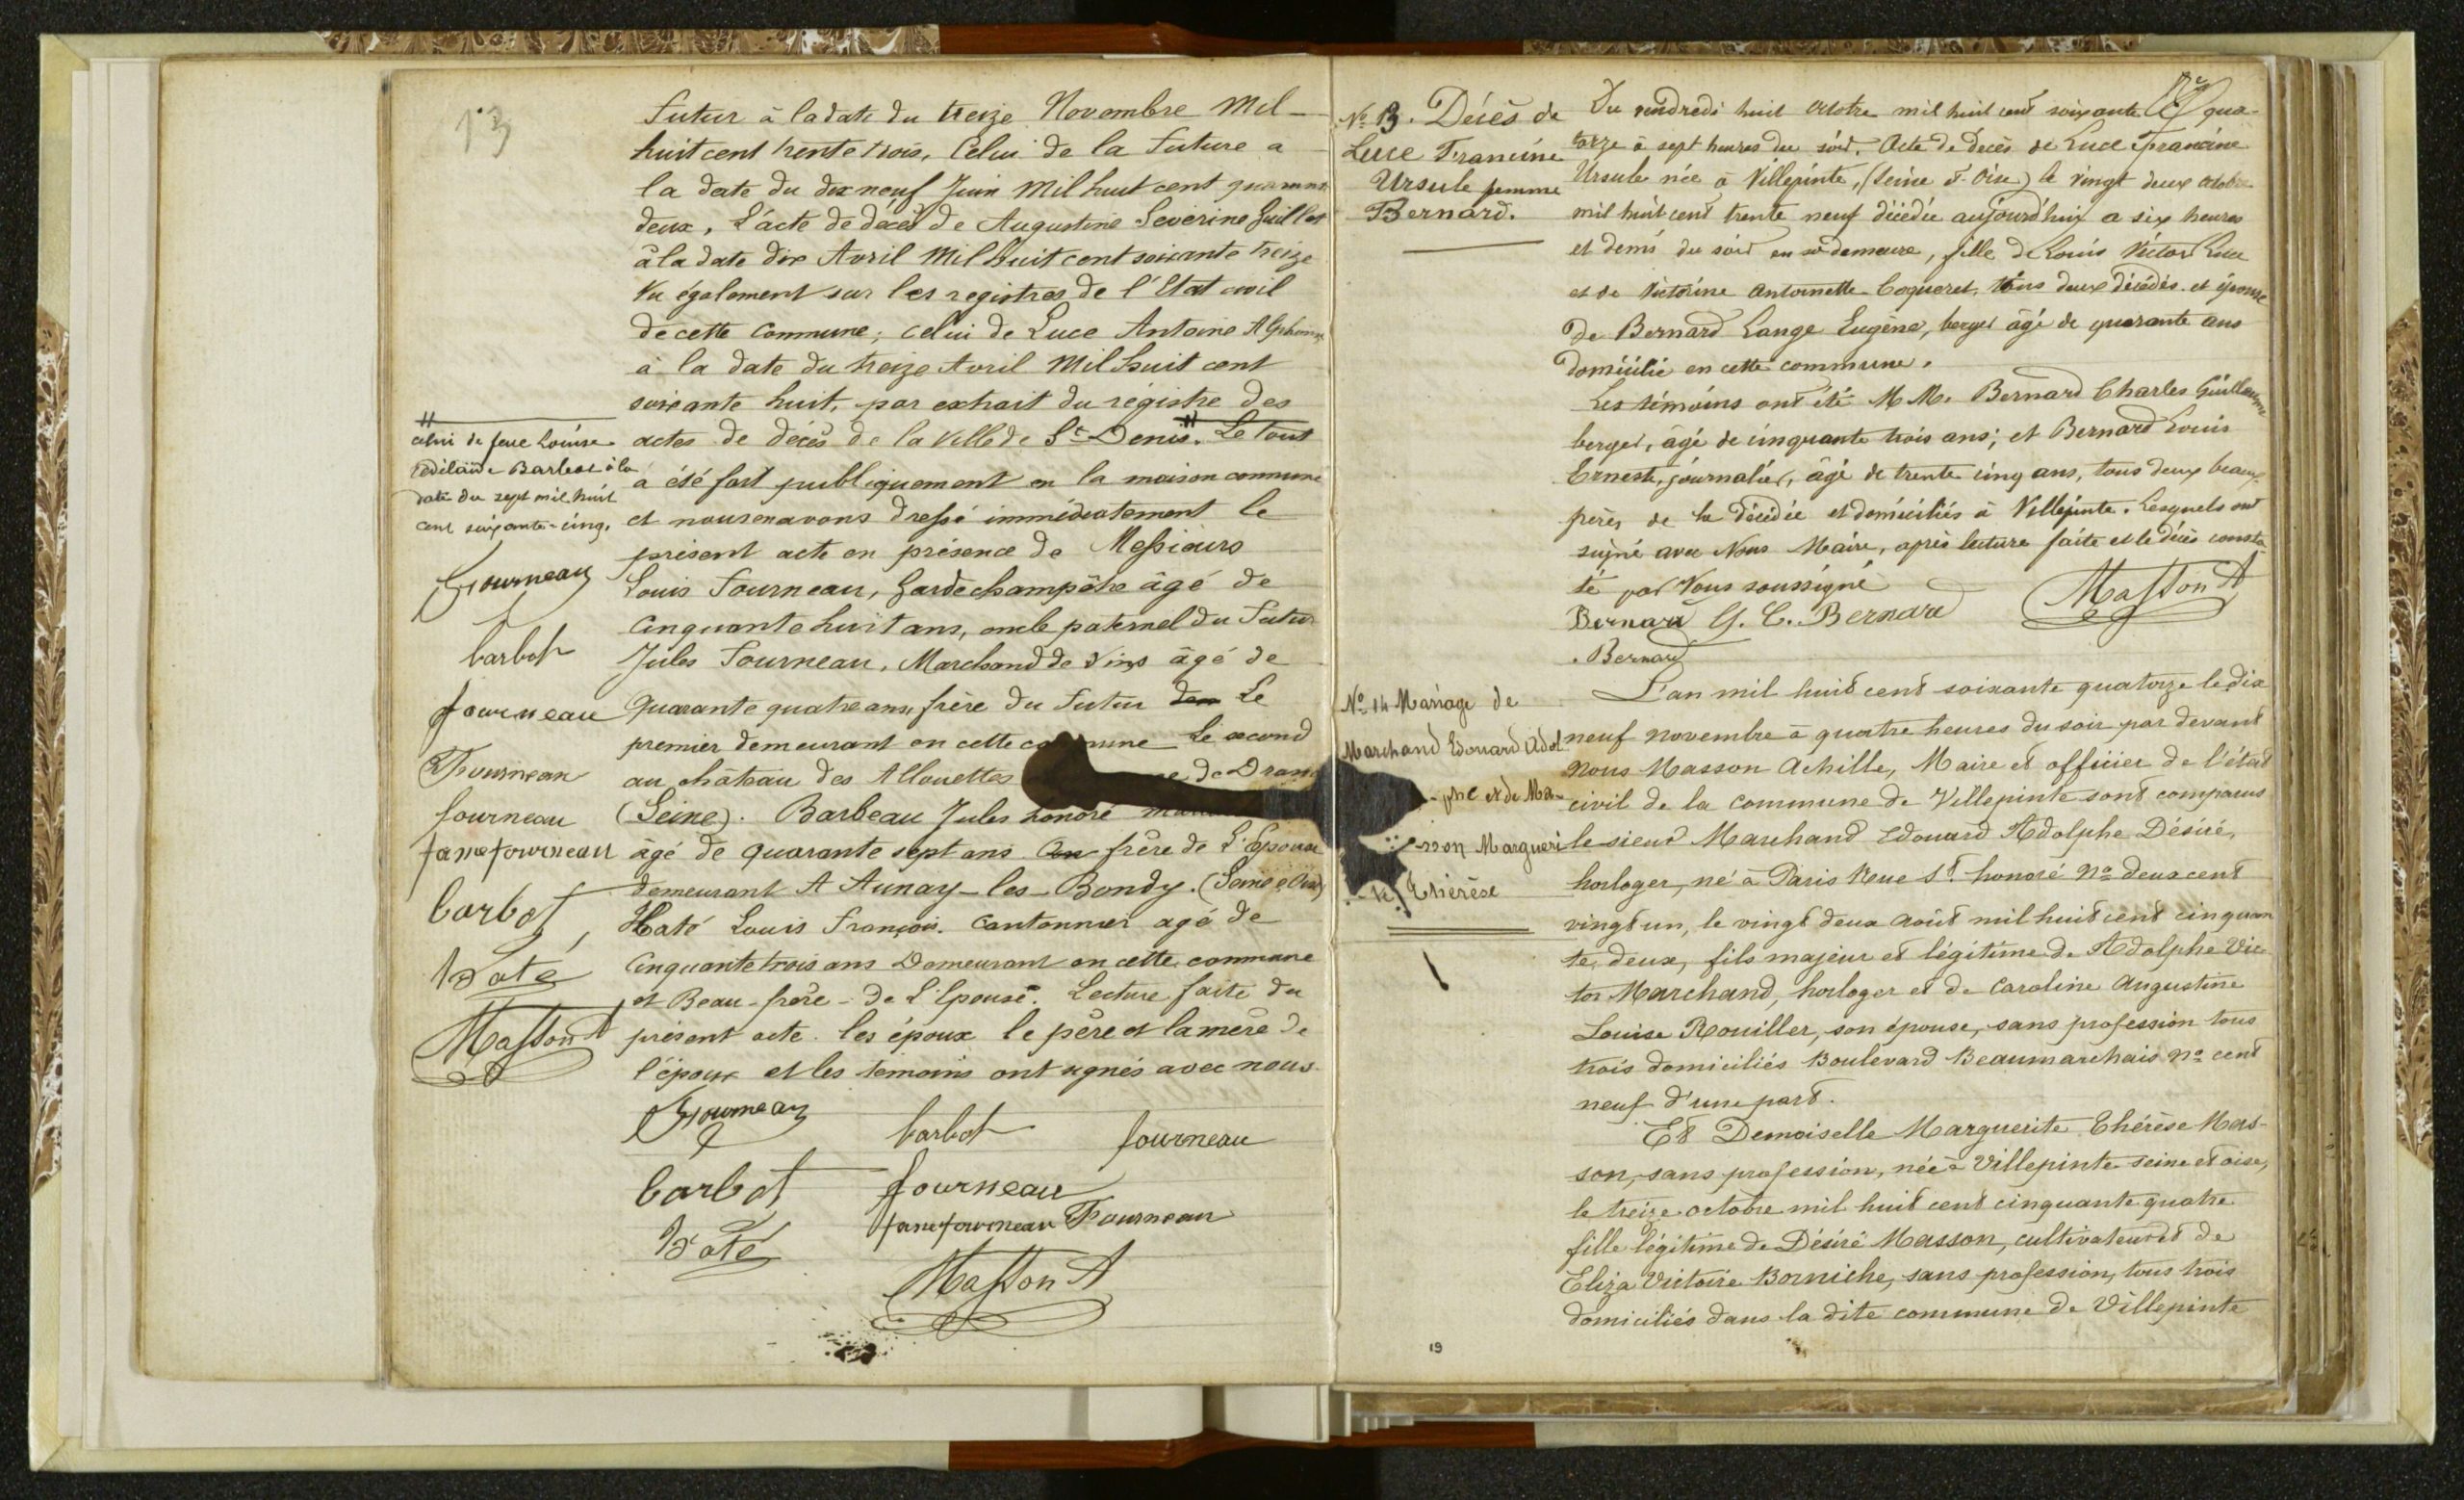 13
futur à la date du treize Novembre Mil
huit cent trente trois, Celui de la future a
la date du dix neuf Juin Mil huit cent quarante
deux, L'acte de décès de Augustine Severine Guillot
à la date dix Avril Mil huit cent soixante treize
Vu également sur les registres de l'Etat civil
de cette Commune; celui de Luce Antoine Alphonse
à la date du treize Avril Mil huit cent
soixante huit, par extrait du régistre des
actes de décès de la Ville de St Denis. Le tout
a été fait publiquement en la maison commune
et nous en avons dressé immédiatement le
présent acte en présence de Messieurs
Louis Fourneau, Garde champêtre âgé de
Cinquante huit ans, oncle paternel du Futur
Jules Fourneau, Marchand de Vins âgé de
Quarante quatre ans, frère du Futur Le
premier demeurant en cette commune Le second
au château des Allouettes de
(Seine). Barbeau Jules honoré
âgé de quarante sept ans frère de L'Epouse
demeurant A Aunay-les-Bondy. (Seine e Oise)
Haté Louis François. Cantonnier agé de
Cinquante trois ans Demeurant en cette commune
et Beau-frère de L'Epouse. Lecture faite du
présent acte. les époux le père et la mère de
l'époux et les témoins ont signés avec nous.
celui de feue Louise
à la
date du sept mil huit
cent soixante-cinq.
Fourneau
barbot
fourneau
Fourneau
fourneau
fane fourneau
barbot
haté
Masson A
Fourneau barbot fourneau
barbot fourneau
haté fane fourneau Fourneau
Masson A
No 13. Décès de
Luce Francine
Ursule femme
Bernard.
Du vendredi huit octobre mil huit cent soixante qua-
torze à sept heures du soir. Acte de Décès de Luce Francine
Ursule née à Villepinte, (Seine & Oise) le vingt deux octobre
mil huit cent trente neuf décédée aujourd'hui a six heures
et demi du soir en sa demeure, fille de Louis Victor Luce
et de Victorine Antoinette Coqueret, tous deux décédés et épouse
de Bernard Lange Eugène, berger âgé de quarante ans
domicilié en cette commune.
Les témoins ont été M M. Bernard Charles Guillaume
berger, âgé de cinquante trois ans; et Bernard Louis
Ernest, journalier, âgé de trente cinq ans, tous deux beaux-
frères de la décédée et domiciliés à Villepinte. Lesquels ont
signé avec Nous Maire, après lecture faite et le décès consta-
té par Nous soussigné
Masson A
Bernard G. C. Bernard
Bernard
No 14 Mariage de
Marchand Edouard Adol
-phe et de Ma-
-sson Margueri
-te Thérèse
L'an mil huit cent soixante quatorze le dix
neuf novembre à quatre heures du soir par devant
nous Masson Achille, Maire et officier de l'état
civil de la commune de Villepinte sont comparus
le sieur Marchand Edouard Adolphe Désiré,
horloger, né à Paris Rue St honoré No deux cent
vingt un, le vingt deux août mil huit cent cinquan
te deux, fils majeur et légitime de Adolphe Vic-
tor Marchand, horloger et de Caroline Augustine
Louise Rouiller, son épouse, sans profession tous
trois domiciliés Boulevard Beaumarchais No cent
neuf d'une part.
Et Demoiselle Marguerite Thérèse Mas-
son, sans profession, née à Villepinte seine et oise,
le treize octobre mil huit cent cinquante quatre
fille légitime de Désiré Masson, cultivateur et de
Eliza Victoire Borniche, sans profession, tous trois
domiciliés dans la dite commune de Villepinte
19